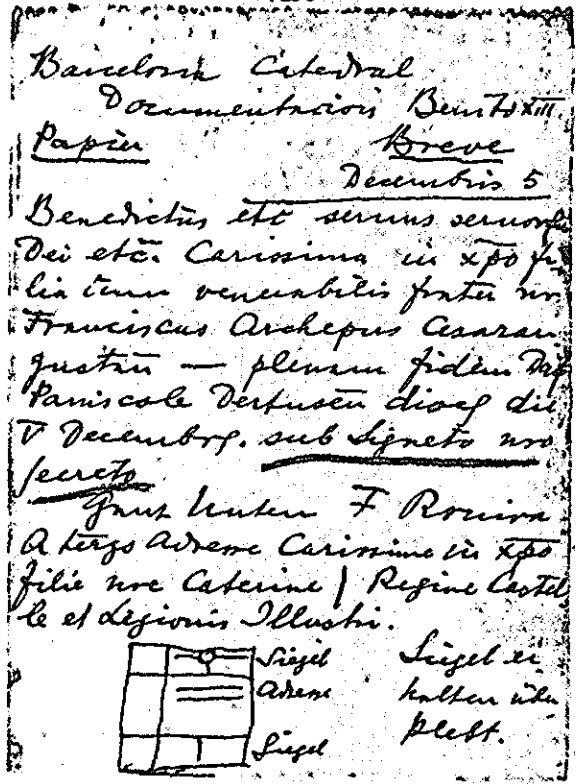 Barcelona Catedral
Documentacion Benito XIII.
Papier Breve
Decembris 5
Benedictus etc servus servorum
Dei etc. Carissima in xpo fi
lia cum venerabilis frater nr
Franciscus Archepus Cesarau
gustan — plenam fidem Dat
Paniscole Dertusen dioc die
V Decembr. sub Signeto nro
secreto
Ganz Unten F Rovira
A tergo Adresse Carissime in xpo
filie nre Caterine / Regine Castel
le et Legionis Illustri.
Siegel
Adresse
Siegel
Siegel er
halten über
klebt.